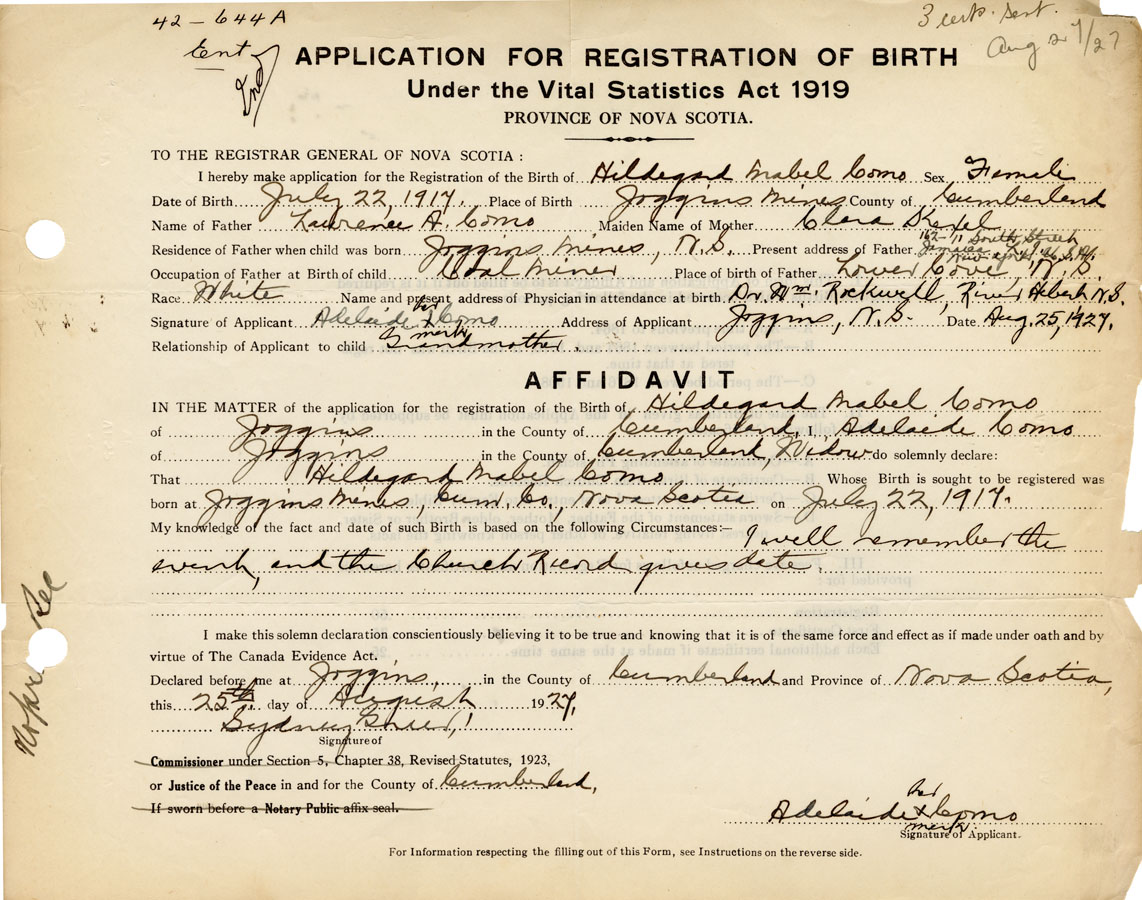 42 - 644A
3 certs. sent.
Aug 27/27
Ent
Ind
APPLICATION FOR REGISTRATION OF BIRTH
Under the Vital Statistics Act 1919
PROVINCE OF NOVA SCOTIA.
TO THE REGISTRAR GENERAL OF NOVA SCOTIA :
I hereby make application for the Registration of the Birth of Hildegard Mabel Como Sex Female
Date of Birth July 22, 1917. Place of Birth Joggins Mines County of Cumberland
Name of Father Lawrence A. Como Maiden Name of Mother Clara
162-11 South Street
Residence of Father when child was born Joggins Mines, N.S. Present address of Father Jamaica
Occupation of Father at Birth of child Coal Miner Place of birth of Father Lower Cove, N.S.
Race White Name and present address of Physician in attendance at birth Dr. Wm. Rockwell, River Hebert N.S.
Signature of Applicant Adelaide her x mark Como Address of Applicant Joggins, N.S. Date Aug. 25, 1927.
Relationship of Applicant to child Grandmother.
AFFIDAVIT
IN THE MATTER of the application for the registration of the Birth of Hildegard Mabel Como
of Joggins in the County of Cumberland, I, Adelaide Como
of Joggins in the County of Cumberland, Widow do solemnly declare:
That Hildegard Mabel Como Whose Birth is sought to be registered was
born at Joggins Mines, Cum. Co., Nova Scotia on July 22, 1917.
My knowledge of the fact and date of such Birth is based on the following Circumstances:— I well remember the
event, and the Church Record gives date.
I make this solemn declaration conscientiously believing it to be true and knowing that it is of the same force and effect as if made under oath and by
virtue of The Canada Evidence Act.
Declared before me at Joggins, in the County of Cumberland and Province of Nova Scotia,
this 25th. day of August 1927,
Sydney
Signature of
Commissioner under Section 5, Chapter 38, Revised Statutes, 1923,
or Justice of the Peace in and for the County of Cumberland,
If sworn before a Notary Public affix seal.
Adelaide her x mark Como
Signature of Applicant.
For Information respecting the filling out of this Form, see Instructions on the reverse side.